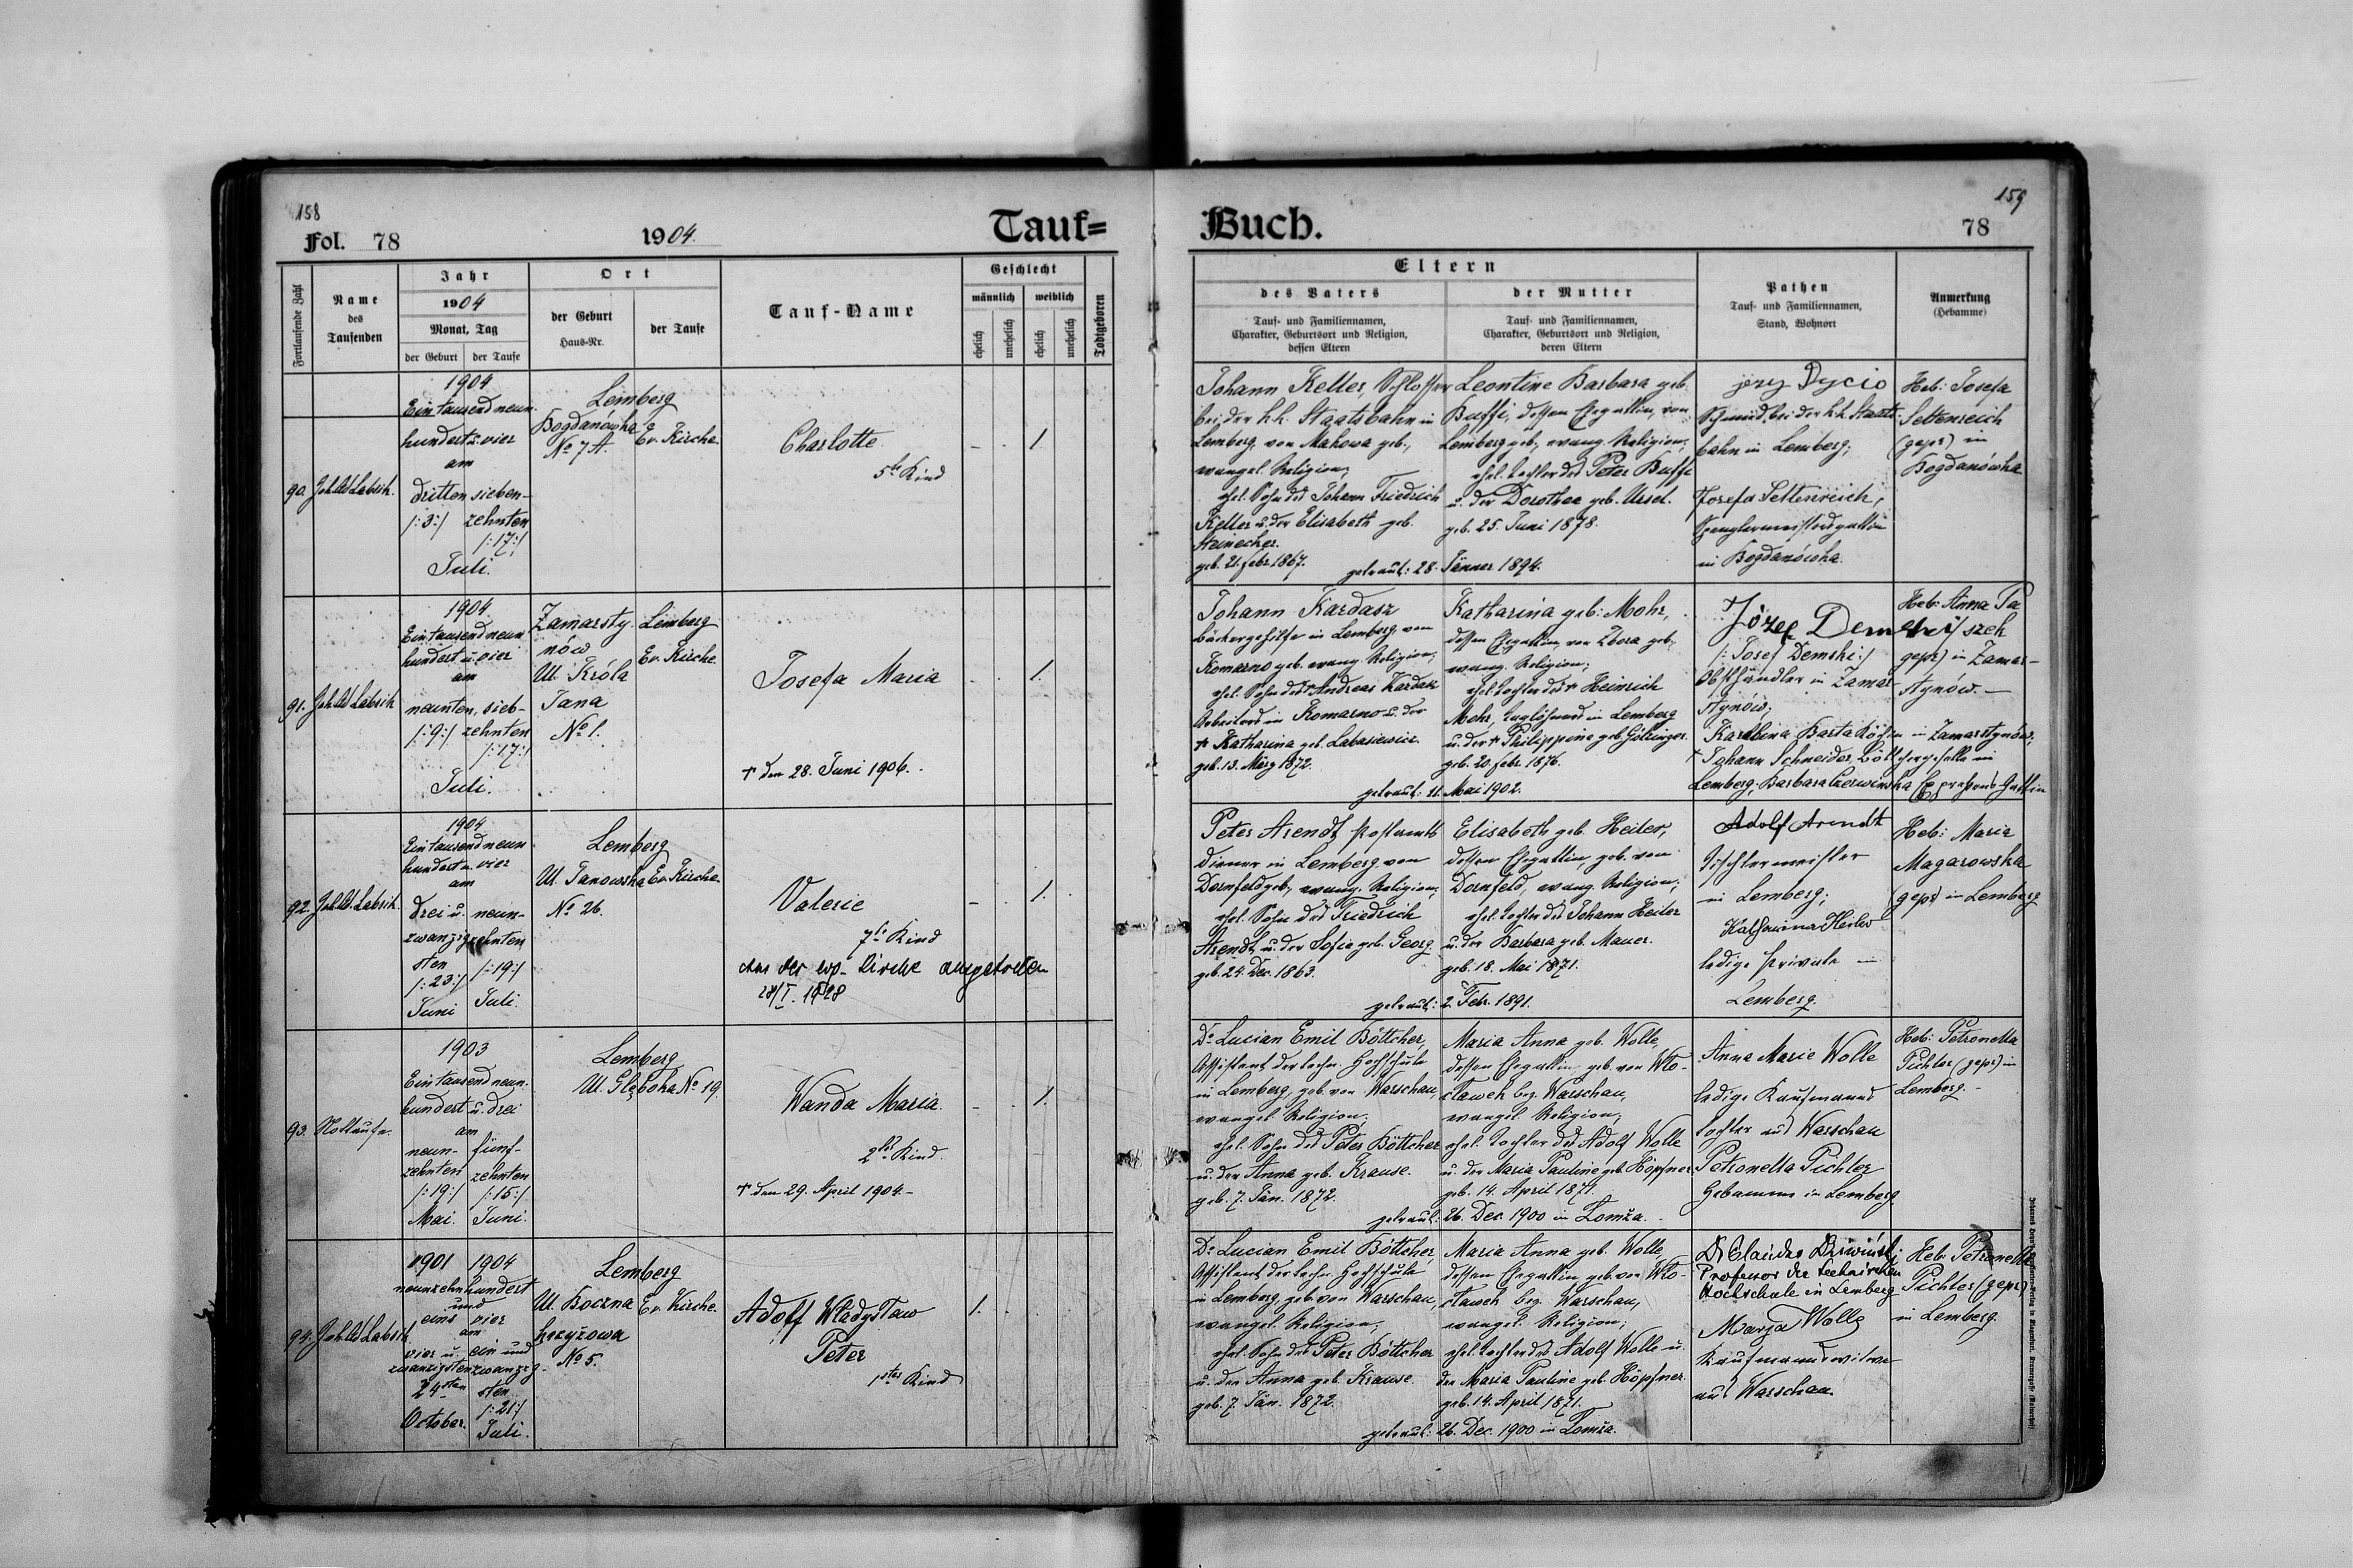 158
Fol. 78
1904.
Tauf=
Fortlaufende Zahl
Name
des
Taufenden
Jahr
1904
Monat, Tag
der Geburt
der Taufe
Ort
der Geburt
Haus-Nr.
der Taufe
Tauf-Name
Geschlecht
männlich
weiblich
ehelich
unehelich
ehelich
unehelich
Todtgeboren
90.
1904
Eintausend neun-
hundert u. vier
am
dritten sieben-
/:3:/ zehnten
/:17:/
Juli.
Lemberg
Bogdanówka
Nº 7 A.
Ev. Kirche.
Charlotte
5tes Kind
1.
91.
1904
Eintausend neun-
hundert u. vier
am
neunten, sieb-
/:9:/ zehnten
/:17:/
Juli.
Zamarsty-
nów
Ul. Króla
Jana
Nº 1.
Lemberg
Ev. Kirche.
Josefa Maria
† den 28. Juni 1906.
1.
92.
1904
Eintausend neun
hundert u. vier
am
drei u. neun-
zwanzig zehnten
sten
/:23:/ /:19:/
Juni Juli.
Lemberg
Ul. Janowska Ev. Kirche.
Nº 26.
Valerie
7tes Kind
Aus der evg. Kirche ausgetreten
28/I. 1928
1.
93. Nottaufe.
1903
Eintausend neun-
hundert u. drei
am
neun- fünf-
zehnten zehnten
/:19:/ /:15:/
Mai. Juni.
Lemberg
Ul. Głęboka Nº 19.
Wanda Maria.
2tes Kind.
† den 29. April 1904.-
1.
94.
1901 1904
neunzehnhundert
und
eins vier
am
vier u. ein und
zwanzigsten zwanzig-
24sten sten
/:21:/
October. Juli.
Lemberg
Ul. Boczna Ev. Kirche.
krzyżowa
Nº 5.
Adolf Władysław
Peter
1stes Kind
1.
159
Buch.
78
Eltern
des Vaters
Tauf- und Familiennamen,
Charakter, Geburtsort und Religion,
dessen Eltern
der Mutter
Tauf- und Familiennamen,
Charakter, Geburtsort und Religion,
deren Eltern
Pathen
Tauf- und Familiennamen,
Stand, Wohnort
Anmerkung
(Hebamme)
Johann Keller, Schlosser
bei der k.k. Staatsbahn in
Lemberg, von Makowa geb.,
evangel. Religion;
ehel. Sohn des Johann Friedrich
Keller u. der Elisabeth geb.
Steinecker.
geb. 21. Febr. 1867.
Leontine Barbara geb.
Buffi, dessen Ehegattin, von
Lemberg geb., evang. Religion;
ehel. Tochter des Peter Buffi
u. der Dorothea geb. Ursel.
geb. 25. Juni 1878.
getraut: 28. Jänner 1894.
jerzy Dycio
Schmied bei der k.k. Staats-
bahn in Lemberg;
Josefa Settenreich,
Spenglermeistersgattin
in Bogdanówka.
Heb: Josefa
Settenreich
(gepr) in
Bogdanówka
Johann Kardasz
Bäckergehilfe in Lemberg, von
Komarno geb. evang. Religion;
ehel. Sohn des † Andreas Kardasz
Arbeiters in Komarno u. der
† Katharina geb. Labasiewicz.
geb. 13. März 1872.
Katharina geb: Mohr,
dessen Ehegattin, von Zbora geb.,
evang. Religion;
ehel. Tochter des † Heinrich
Mohr, Taglöhners in Lemberg
u. der † Philippina geb. Götzinger.
geb. 20. Febr. 1876.
getraut: 11. Mai 1902.
Józef Demski
/:Josef Demski:/
Obsthändler in Zamar-
stynów;
Karolina Barta Köchin in Zamarstynów;
† Johann Schneider, Böttchergeselle in
Lemberg; Barbara Czerwinska
Heb: Anna Pa
szek
gepr) in Zamar-
stynów.-
Peter Arendt Postamts
diener in Lemberg von
Dornfeld geb., evang. Religion;
ehel. Sohn des Friedrich
Arendt u. der Sofia geb. Georg
geb. 24. Dec. 1863.
Elisabeth geb. Heiler,
dessen Ehegattin, geb. von
Dornfeld, evang. Religion;
ehel. Tochter des Johann Heiler
u. der Barbara geb. Mauer.
geb. 18. Mai 1871.
getraut: 2. Febr. 1891.
Adolf Arendt
Tischlermeister
in Lemberg;
Katharina Heiler
ledige Private in
Lemberg.
Heb: Maria
Magarowska
(gepr) in Lemberg
Dr. Lucian Emil Böttcher,
Assistent der techn. Hochschule
in Lemberg, geb. von Warschau,
evangel. Religion;
ehel. Sohn des Peter Böttcher
u. der Anna geb. Krause.
geb. 7. Jän. 1872.
Maria Anna geb. Wolle,
dessen Ehegattin, geb. von Wło-
cławek bez. Warschau,
evangel. Religion;
ehel. Tochter des Adolf Wolle
u. der Maria Pauline geb. Höpfner
geb. 14. April 1871.
getraut: 26. Dec. 1900 in Lomża.
Anna Marie Wolle
ledige Kaufmanns
tochter aus Warschau
Petronella Pichler
Hebamme in Lemberg.
Heb: Petronella
Pichler (gepr) in
Lemberg.-
Dr. Lucian Emil Böttcher,
Assistent der techn. Hochschule
in Lemberg geb. von Warschau,
evangel. Religion;
ehel. Sohn des Peter Böttcher
u. der Anna geb. Krause.
geb. 7. Jän. 1872.
Maria Anna geb. Wolle,
dessen Ehegattin geb. von Wło-
cławek bez. Warschau,
evangel. Religion;
ehel. Tochter des Adolf Wolle u.
der Maria Pauline geb. Höpfner.
geb. 14. April 1871.
getraut: 26. Dec. 1900 in Lomża.
Professor der technischen
Hochschule in Lemberg
Marya Wolle
Kaufmannswitwe
aus Warschau.
Heb: Petronella
Pichler (gepr)
in Lemberg.